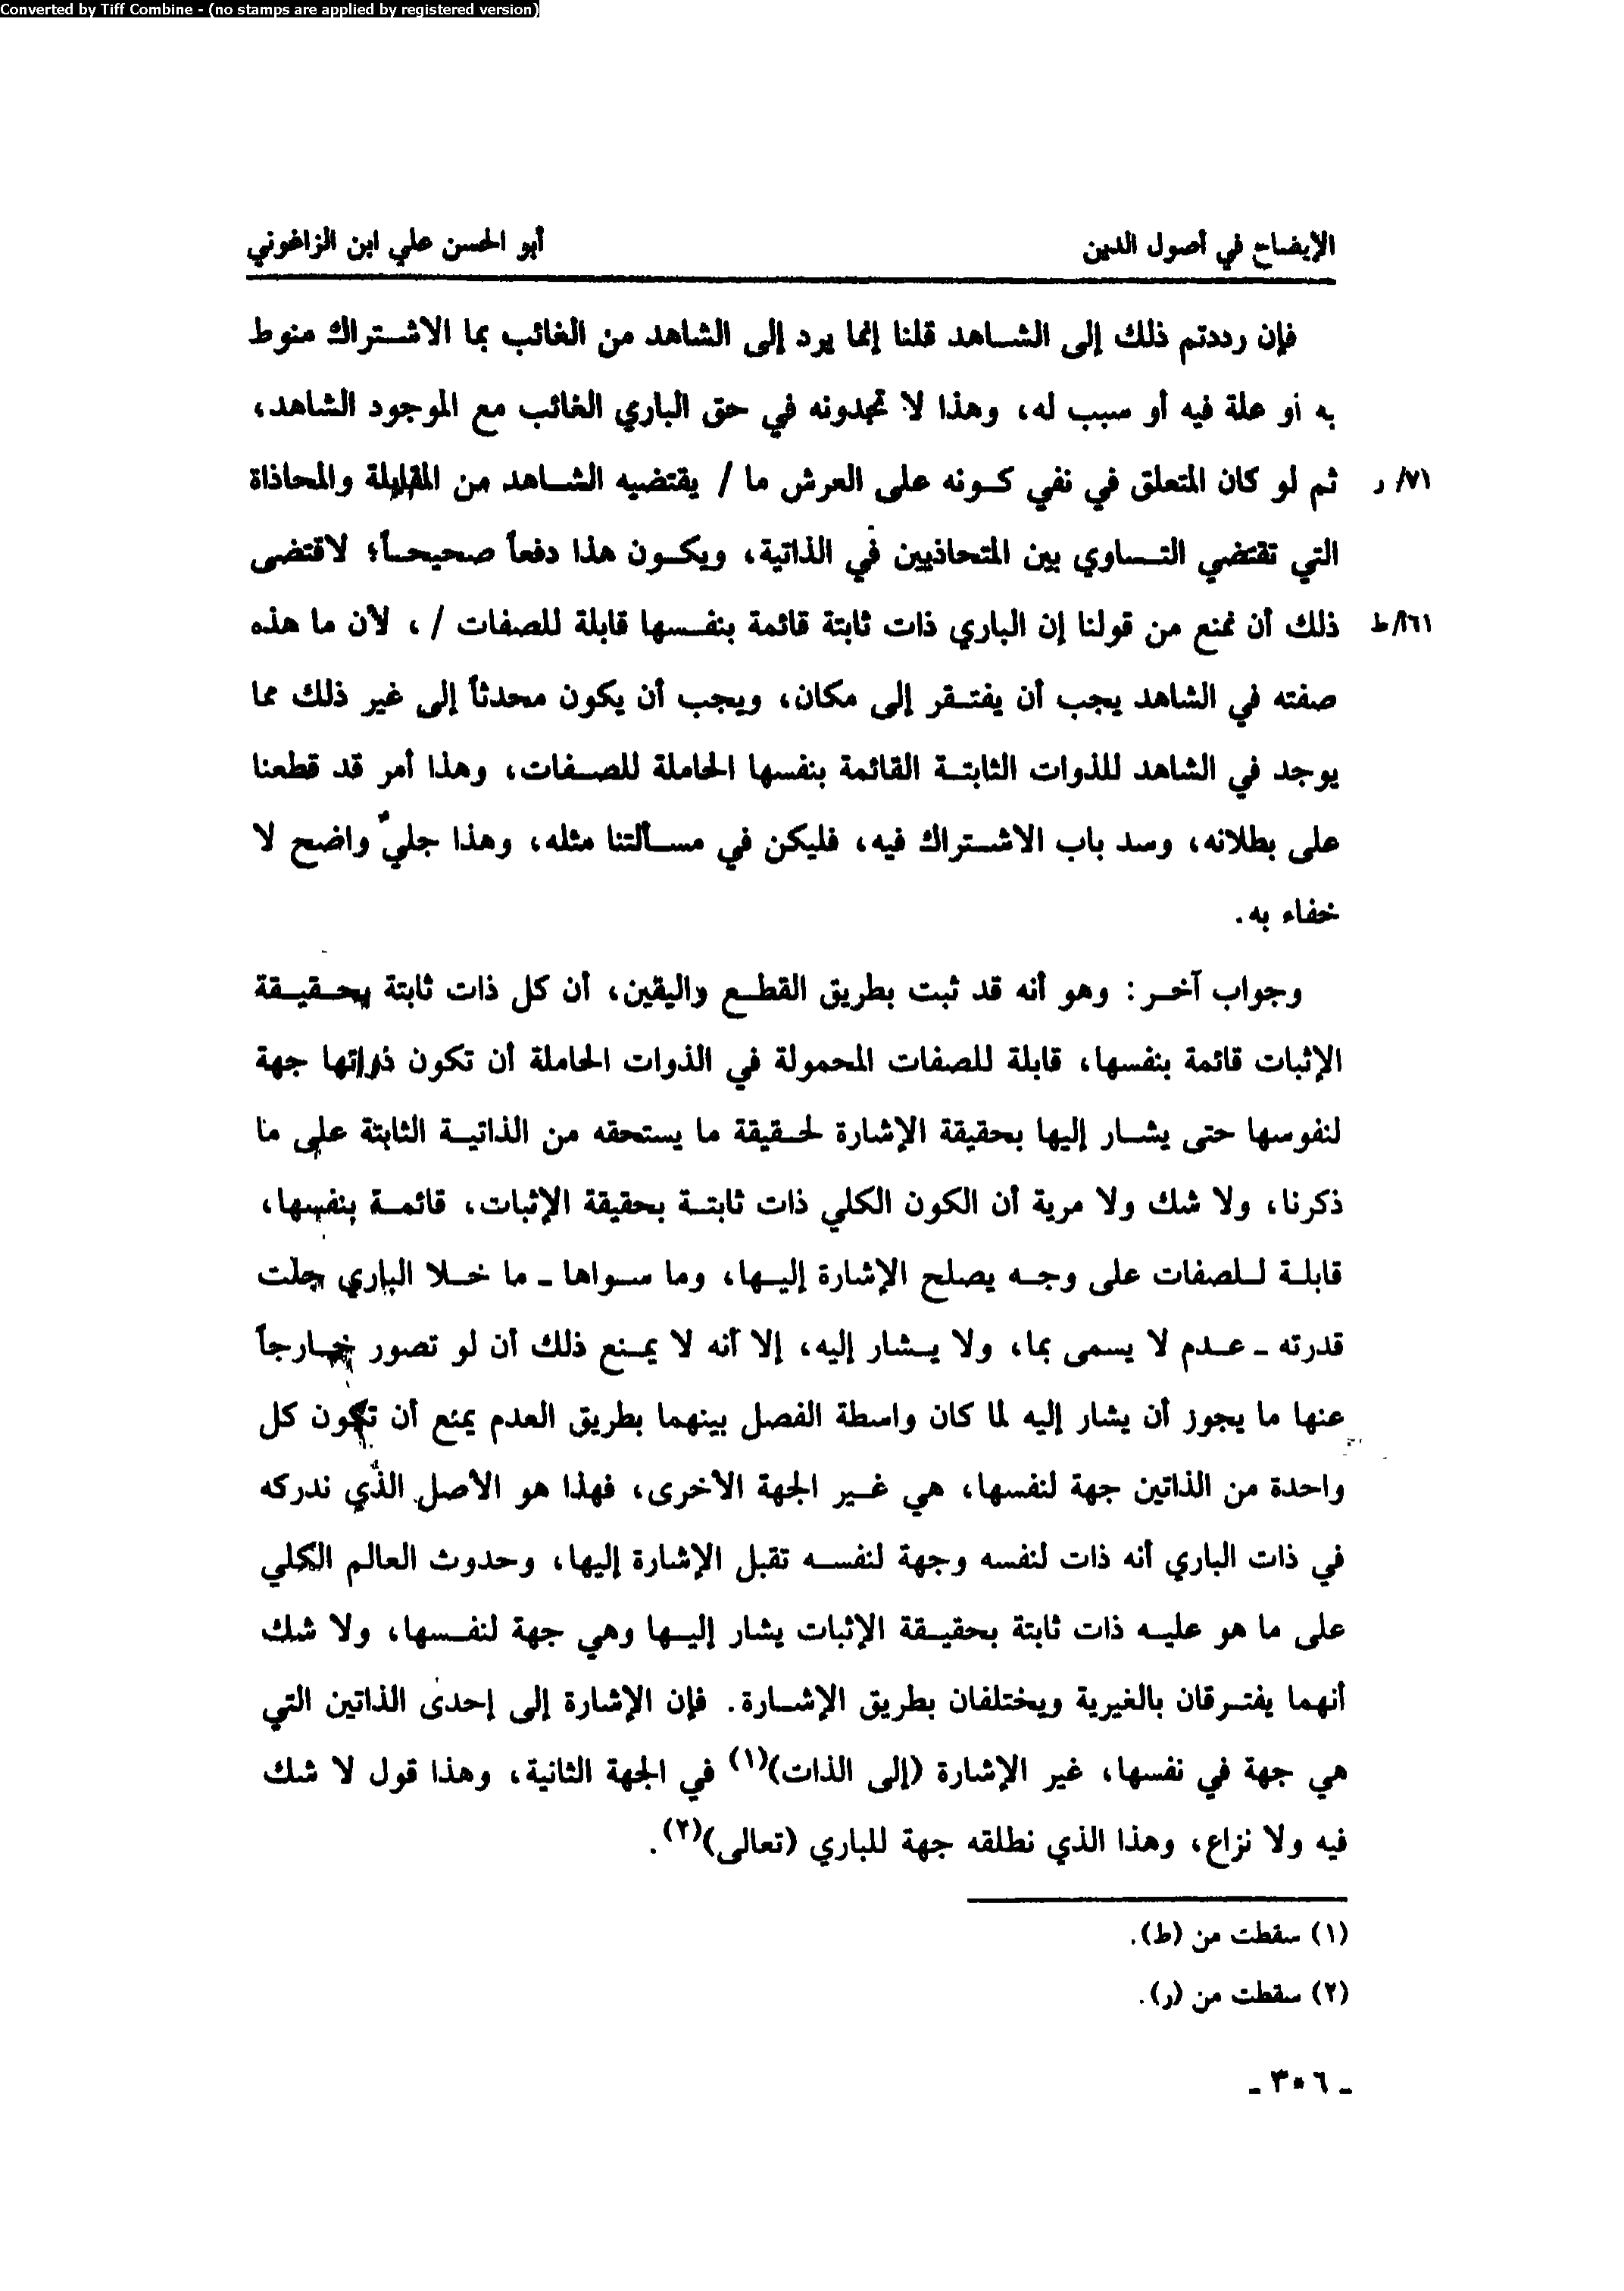 Converted by Tiff Combine - (no stamps are applied by registered version)
الإيضاح في أصول الدين أبو الحسن علي ابن الزاغوني
فإن رددتم ذلك إلى الشاهد قلنا إنما يرد إلى الشاهد من الغائب بما الاشتراك منوط
به أو علة فيه أو سبب له، وهذا لا تجدونه في حق الباري الغائب مع الموجود الشاهد،
ثم لو كان المتعلق في نفي كونه على العرش ما / يقتضيه الشاهد من المقابلة والمحاذاة ٧١/ ر
التي تقتضي التساوي بين المتحاذيين في الذاتية، ويكون هذا دفعاً صحيحاً؛ لاقتضى
ذلك أن نمنع من قولنا إن الباري ذات ثابتة قائمة بنفسها قابلة للصفات / ، لأن ما هذه ١٦١/ط
صفته في الشاهد يجب أن يفتقر إلى مكان، ويجب أن يكون محدثاً إلى غير ذلك مما
يوجد في الشاهد للذوات الثابتة القائمة بنفسها الحاملة للصفات، وهذا أمر قد قطعنا
على بطلانه، وسد باب الاشتراك فيه، فليكن في مسألتنا مثله، وهذا جليٌ واضح لا
خفاء به.
وجواب آخر: وهو أنه قد ثبت بطريق القطع واليقين، أن كل ذات ثابتة بحقيقة
الإثبات قائمة بنفسها، قابلة للصفات المحمولة في الذوات الحاملة أن تكون ذواتها جهة
لنفوسها حتى يشار إليها بحقيقة الإشارة لحقيقة ما يستحقه من الذاتية الثابتة على ما
ذكرنا، ولا شك ولا مرية أن الكون الكلي ذات ثابتة بحقيقة الإثبات، قائمة بنفسها،
قابلة للصفات على وجه يصلح الإشارة إليها، وما سواها ـ ما خلا الباري جلت
قدرته ـ عدم لا يسمى بما، ولا يشار إليه، إلا أنه لا يمنع ذلك أن لو تصور خارجاً
عنها ما يجوز أن يشار إليه لما كان واسطة الفصل بينهما بطريق العدم يمنع أن تكون كل
واحدة من الذاتين جهة لنفسها، هي غير الجهة الأخرى، فهذا هو الأصل الذي ندركه
في ذات الباري أنه ذات لنفسه وجهة لنفسه تقبل الإشارة إليها، وحدوث العالم الكلي
على ما هو عليه ذات ثابتة بحقيقة الإثبات يشار إليها وهي جهة لنفسها، ولا شك
أنهما يفترقان بالغيرية ويختلفان بطريق الإشارة. فإن الإشارة إلى إحدى الذاتين التي
هي جهة في نفسها، غير الإشارة (إلى الذات)(١) في الجهة الثانية، وهذا قول لا شك
فيه ولا نزاع، وهذا الذي نطلقه جهة للباري (تعالى)(٢).
(١) سقطت من (ط).
(٢) سقطت من (ر).
ـ ٣٠٦ ـ